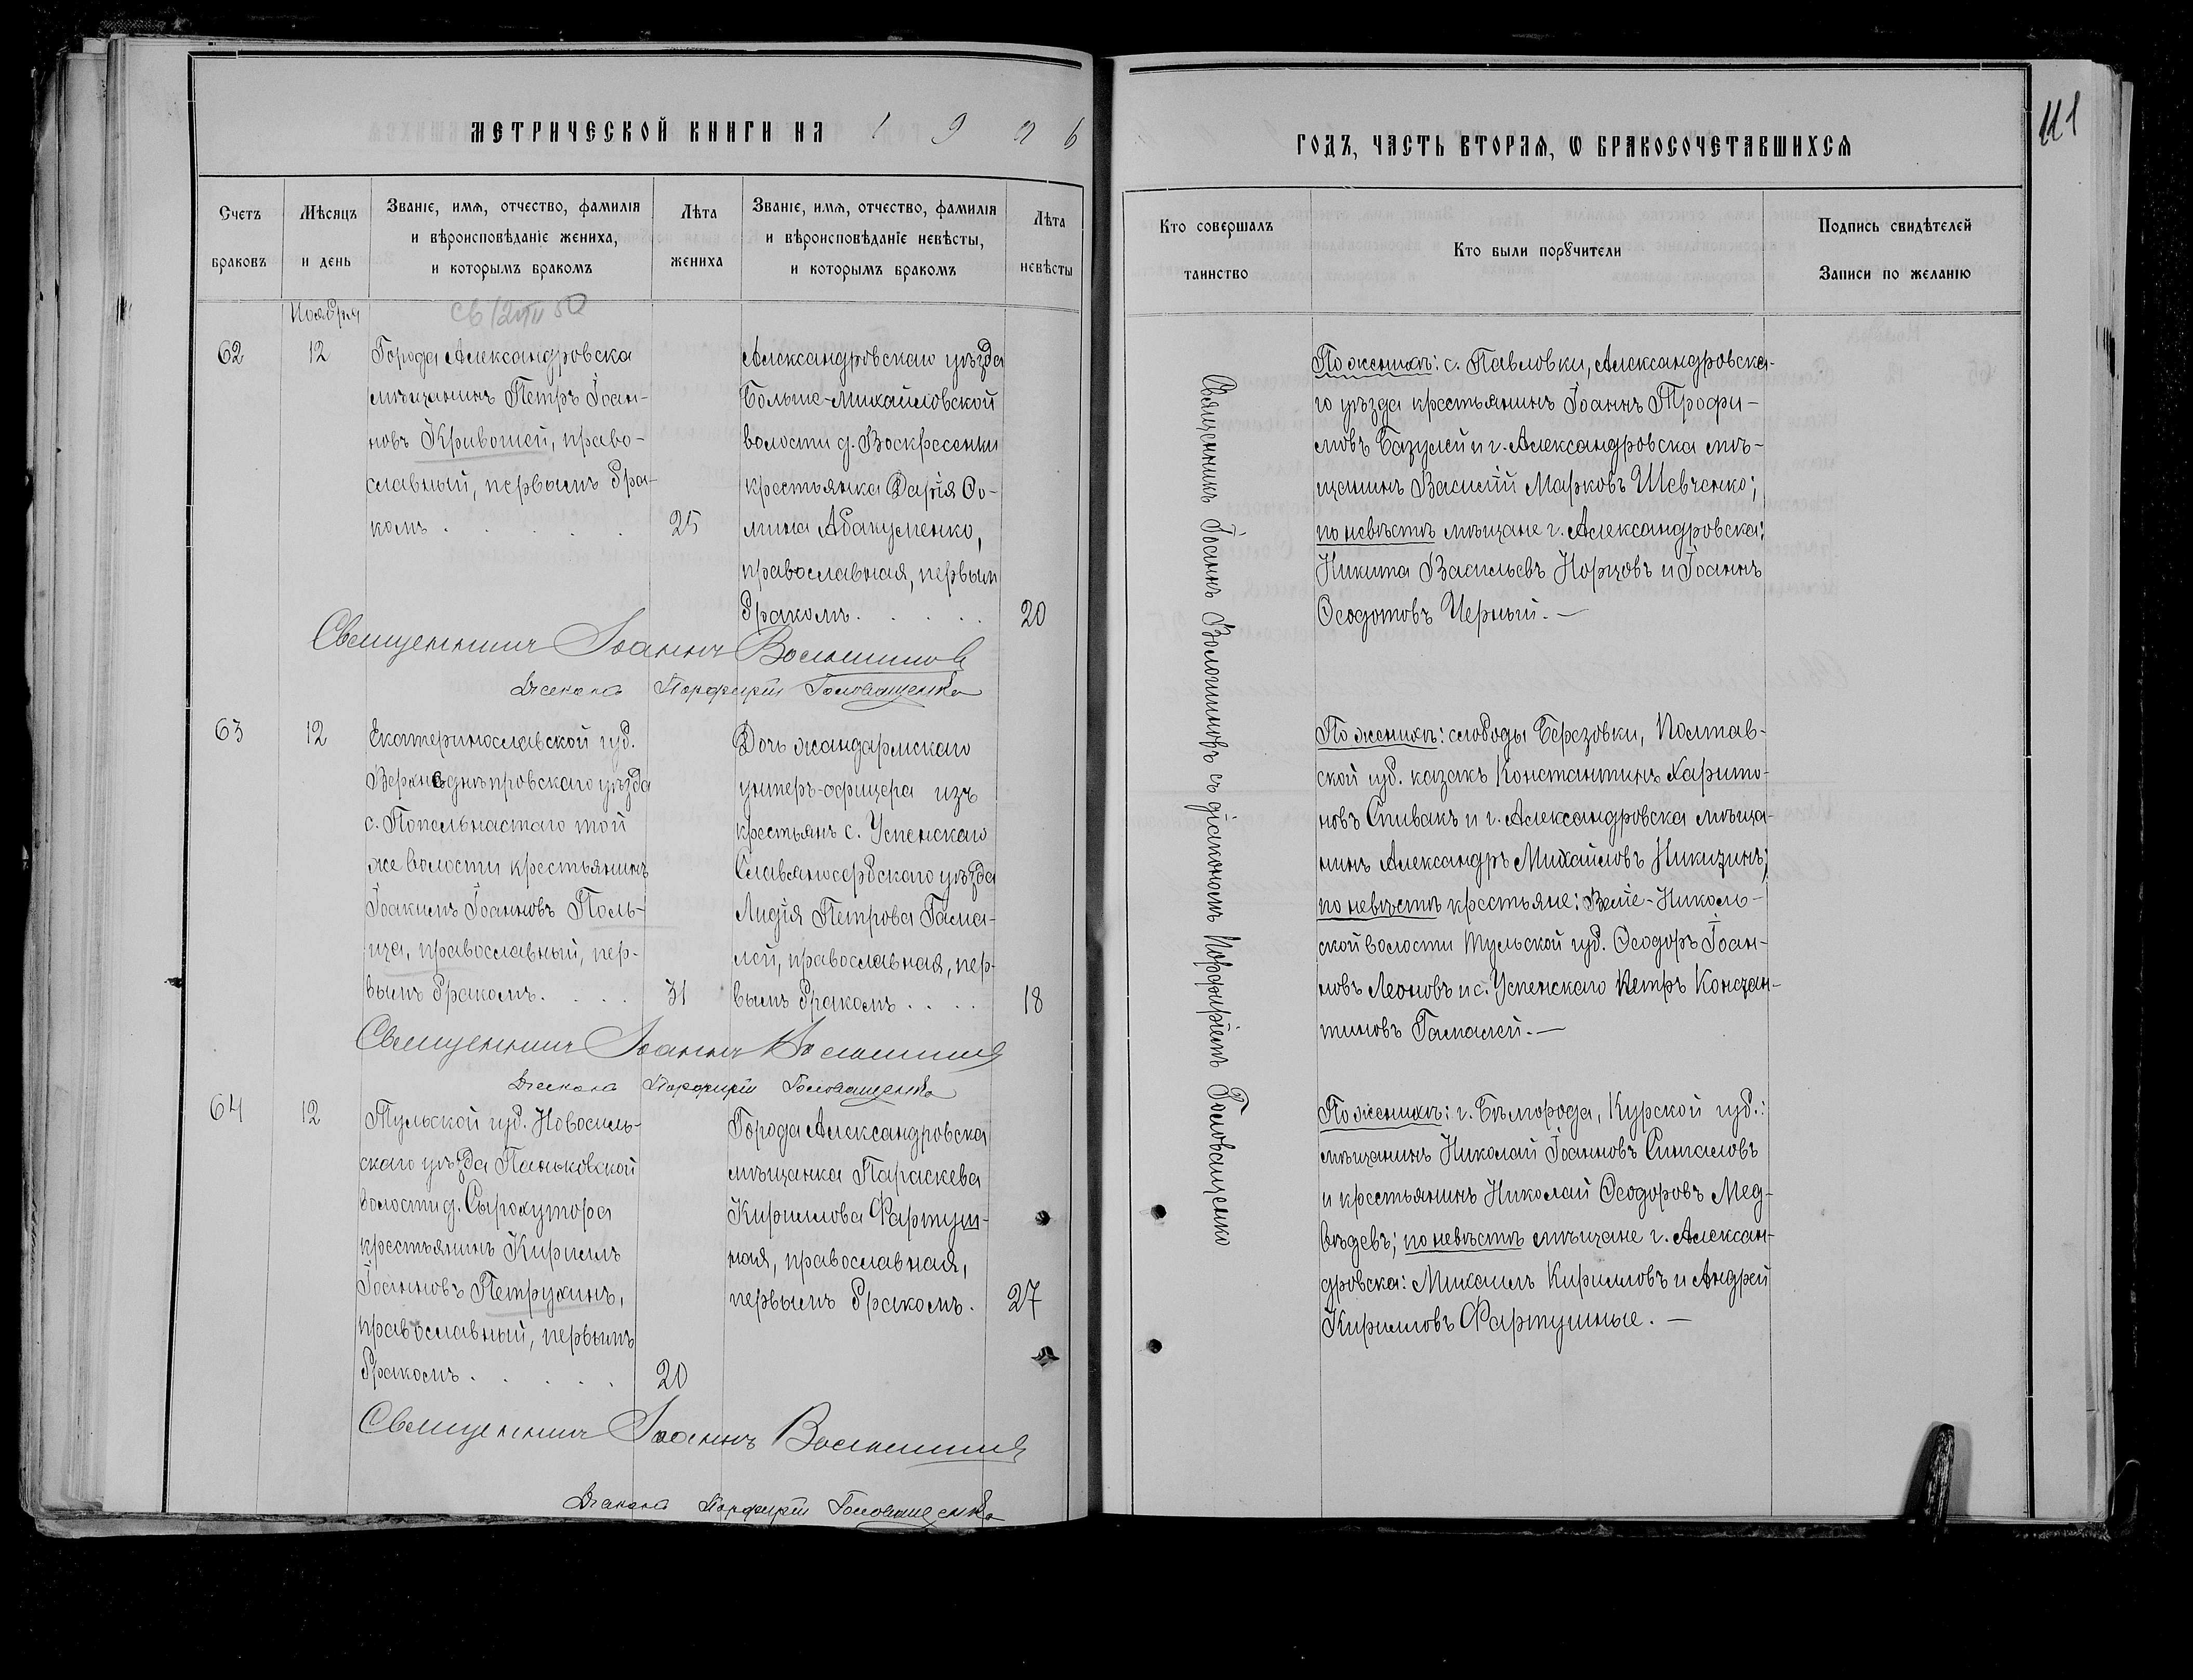 МЕТРИЧЕСКОЙ КНИГИ НА 1906
Счетъ браковъ
Мѣсяцъ и день
Званіе, имя, отчество, фамилія
и вѣроисповѣданіе жениха,
и которымъ бракомъ
Лѣта
жениха
Званіе, имя, отчество, фамилія
и вѣроисповѣданіе невѣсты,
и которымъ бракомъ
Лѣта
невѣсты
Ноября
62
12
Города Александровска
мѣщанинъ Петръ Іоан-
новъ Кривошей, право-
славный, первымъ бра-
комъ . . . . .
25
Александровскаго уѣзда
Больше-Михайловской
волости д. Воскресенки
крестьянка Дарія Ѳо-
мина Абакуменко,
православная, первым
бракомъ . . . . .
20
Священникъ Іоаннъ Волошиновъ
Діаконъ Порфирій Головащенко
63
12
Екатеринославской губ.
Верхнеднѣпровскаго уѣзда
с. Попельнастаго той
же волости крестьянинъ
Іоакимъ Іоанновъ Поль-
ща, православный, пер-
вымъ бракомъ . . . .
31
Дочь жандармскаго
унтеръ-офицера изъ
крестьянъ с. Успенскаго
Славяносербскаго уѣзда
Лидія Петрова Гама-
лей, православная, пер-
вымъ бракомъ . . . .
18
Священникъ Іоаннъ Волошиновъ
Діаконъ Порфирій Головащенко
64
12
Тульской губ. Новосиль-
скаго уѣзда Паньковской
волости д. Сырохутора
крестьянинъ Кириллъ
Іоанновъ Петрухинъ,
православный, первымъ
бракомъ . . . . .
20
Города Александровска
мѣщанка Параскева
Кириллова Фартуш-
ная, православная,
первымъ бракомъ.
27
Священникъ Іоаннъ Волошиновъ
Діаконъ Порфирій Головащенко
ГОДЪ, ЧАСТЬ ВТОРАЯ, Ѡ БРАКОСОЧЕТАВШИХСЯ
111
Кто совершалъ
таинство
Кто были порꙋчители
Подпись свидѣтелей
Записи по желанію
Священникъ Іоаннъ Волошиновъ съ діакономъ Порфиріемъ Головащенко
По женихѣ: с. Павловки, Александровска-
го уѣзда крестьянинъ Іоаннъ Трофи-
мовъ Базулей и г. Александровска мѣ-
щанинъ Василій Марковъ Шевченко;
по невѣстѣ мѣщане г. Александровска:
Никита Васильевъ Норцовъ и Іоаннъ
Ѳеодотовъ Черный. —
По женихѣ: слободы Березовки, Полтав-
ской губ. казакъ Константинъ Харито-
новъ Спивакъ и г. Александровска мѣща-
нинъ Александръ Михайловъ Никизинъ;
по невѣстѣ крестьяне: Веліе-Николь-
ской волости Тульской губ. Ѳеодоръ Іоан-
новъ Леоновъ и с. Успенскаго Петръ Констан-
тиновъ Гамалей. —
По женихѣ: г. Бѣлгорода, Курской губ.:
мѣщанинъ Николай Іоанновъ Сипаловъ
и крестьянинъ Николай Ѳеодоровъ Мед-
вѣдевъ; по невѣстѣ мѣщане г. Алексан-
дровска: Михаилъ Кирилловъ и Андрей
Кирилловъ Фартушные. —